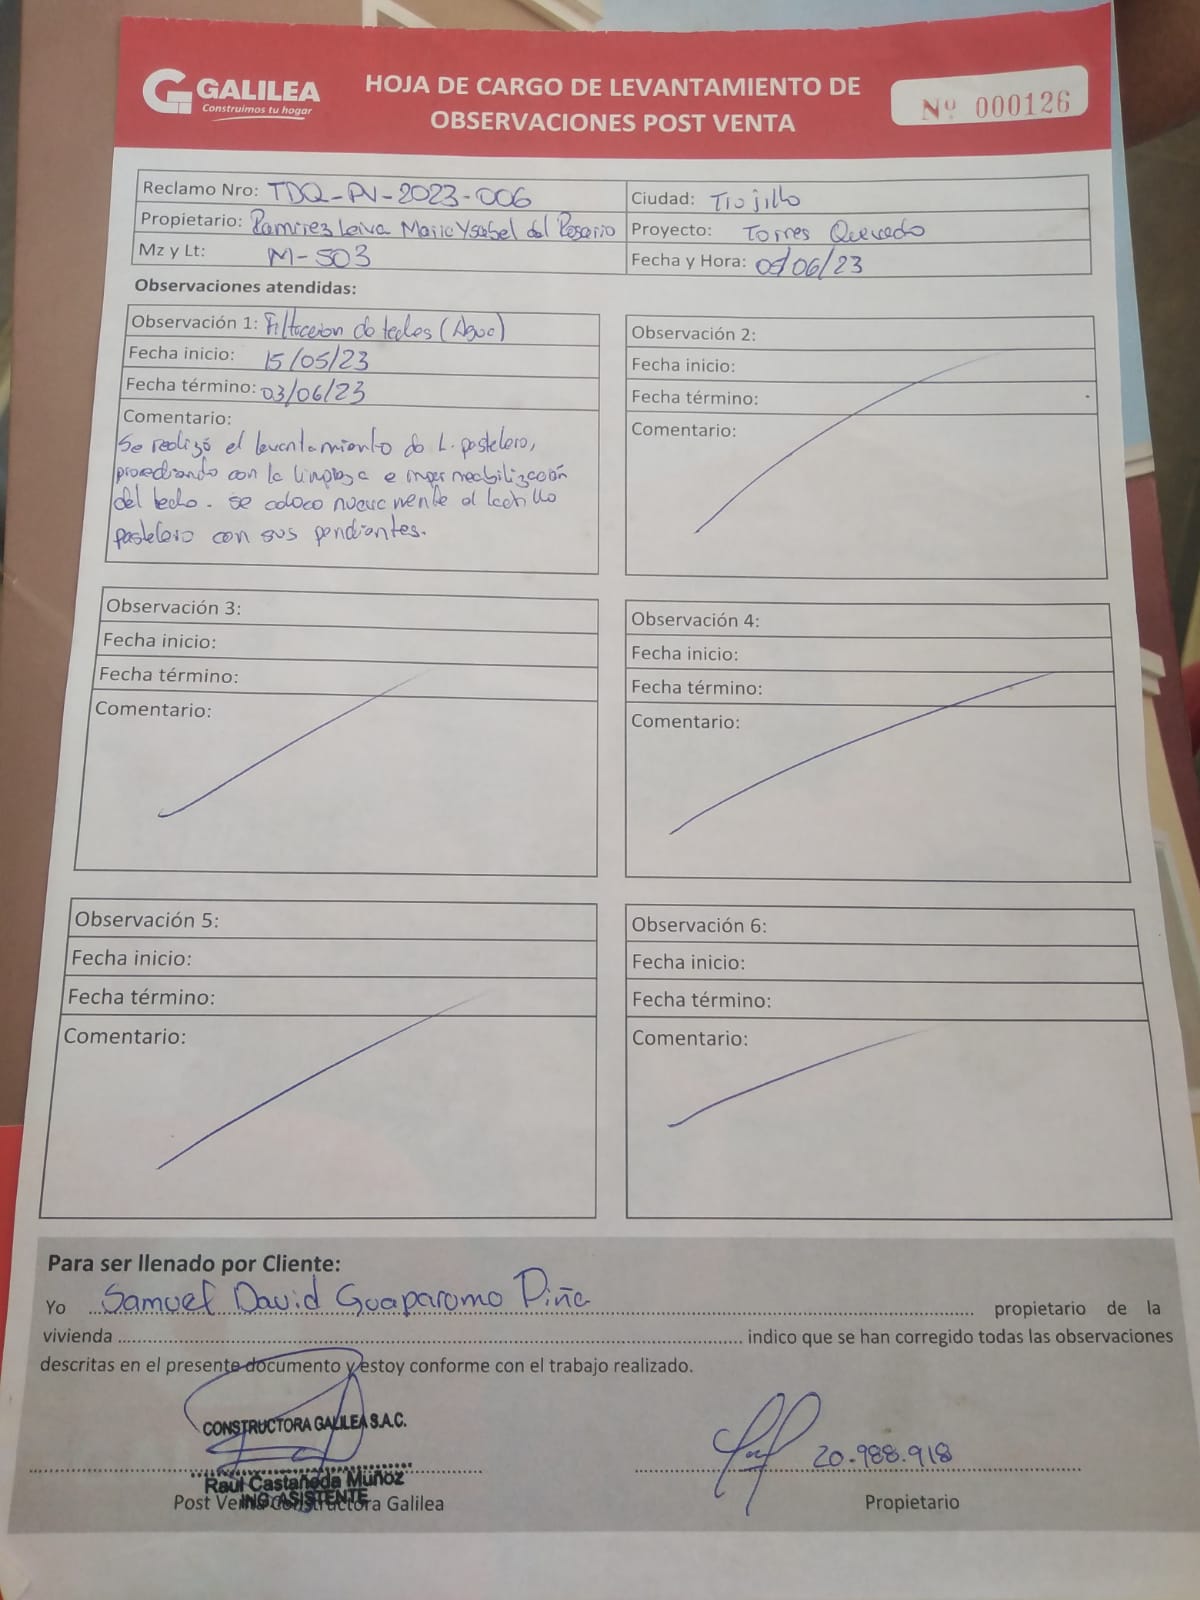 GALILEA
Construimos tu hogar
HOJA DE CARGO DE LEVANTAMIENTO DE
OBSERVACIONES POST VENTA
Nº 000126
Reclamo Nro: TDQ-PV-2023-006
Ciudad: Trujillo
Propietario: Ramirez Leiva Maria Ysabel del Rosario
Proyecto: Torres Quevedo
Mz y Lt: M-503
Fecha y Hora: 05/06/23
Observaciones atendidas:
Observación 1: Filtracion de techos (Agua)
Fecha inicio: 15/05/23
Fecha término: 03/06/23
Comentario:
Se realizó el levantamiento de L. pastelero,
procediendo con la limpieza e impermeabilización
del techo. se coloco nuevamente el ladrillo
pastelero con sus pendientes.
Observación 2:
Fecha inicio:
Fecha término:
Comentario:
Observación 3:
Fecha inicio:
Fecha término:
Comentario:
Observación 4:
Fecha inicio:
Fecha término:
Comentario:
Observación 5:
Fecha inicio:
Fecha término:
Comentario:
Observación 6:
Fecha inicio:
Fecha término:
Comentario:
Para ser llenado por Cliente:
Yo Samuel David Guaparomo Piña propietario de la
vivienda indico que se han corregido todas las observaciones
descritas en el presente documento y estoy conforme con el trabajo realizado.
CONSTRUCTORA GALILEA S.A.C.
Raúl Castañeda Muñoz
ING. ASISTENTE
Post Venta Constructora Galilea
20.988.918
Propietario